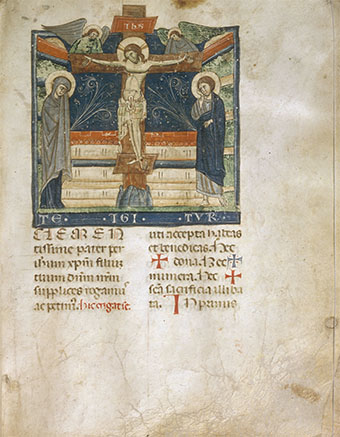 IHS
TE · IGI · TUR
CLEMEN
tissime pater per
ihum xpm filium
tuum dnm nrm
supplices rogamus
ac petim
uti accepta habeas
et benedicas. hec
dona. hec
munera. hec
sca sacrificia illiba
ta. In primis